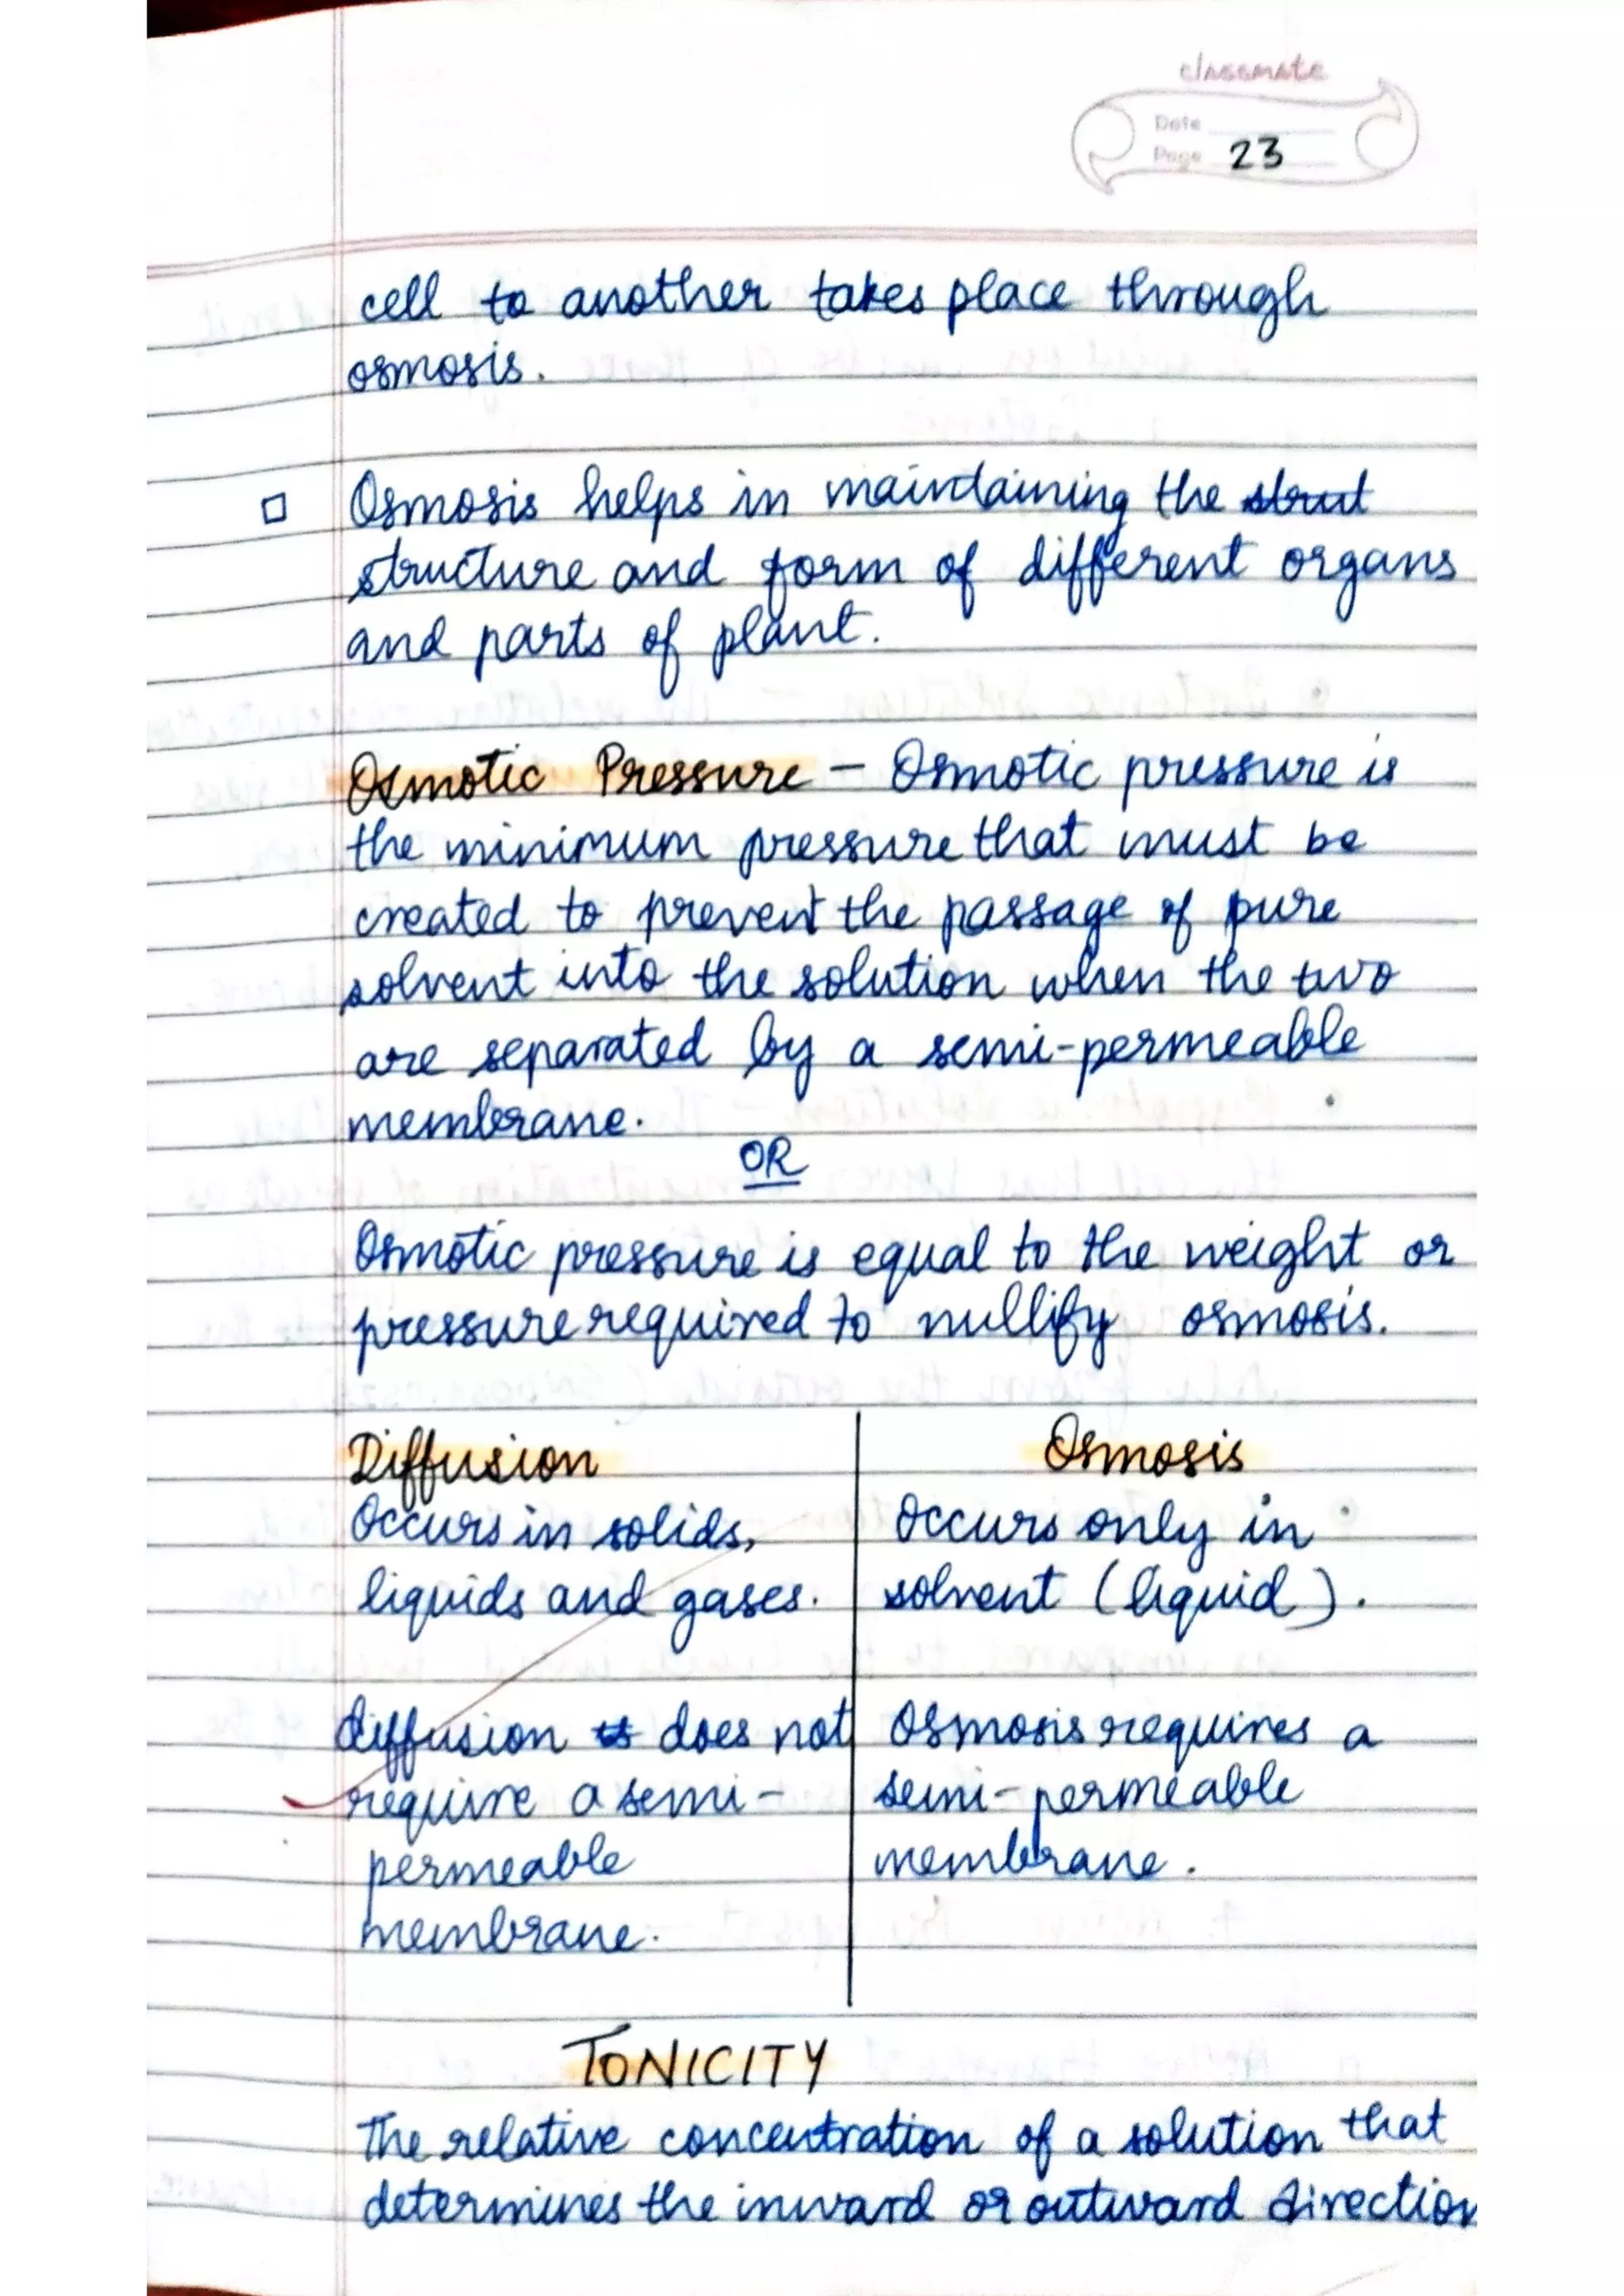 classmate
Date
Page 23
cell to another takes place through
osmosis.
□ Osmosis helps in maintaining the strut
structure and form of different organs
and parts of plant.
Osmotic Pressure – Osmotic pressure is
the minimum pressure that must be
created to prevent the passage of pure
solvent into the solution when the two
are separated by a semi-permeable
membrane.
OR
Osmotic pressure is equal to the weight or
pressure required to nullify osmosis.
Diffusion
Occurs in solids,
liquids and gases.
diffusion is does not
require a semi-
permeable
membrane.
Osmosis
Occurs only in
solvent (liquid).
Osmosis requires a
semi-permeable
membrane.
TONICITY
The relative concentration of a solution that
determines the inward or outward direction